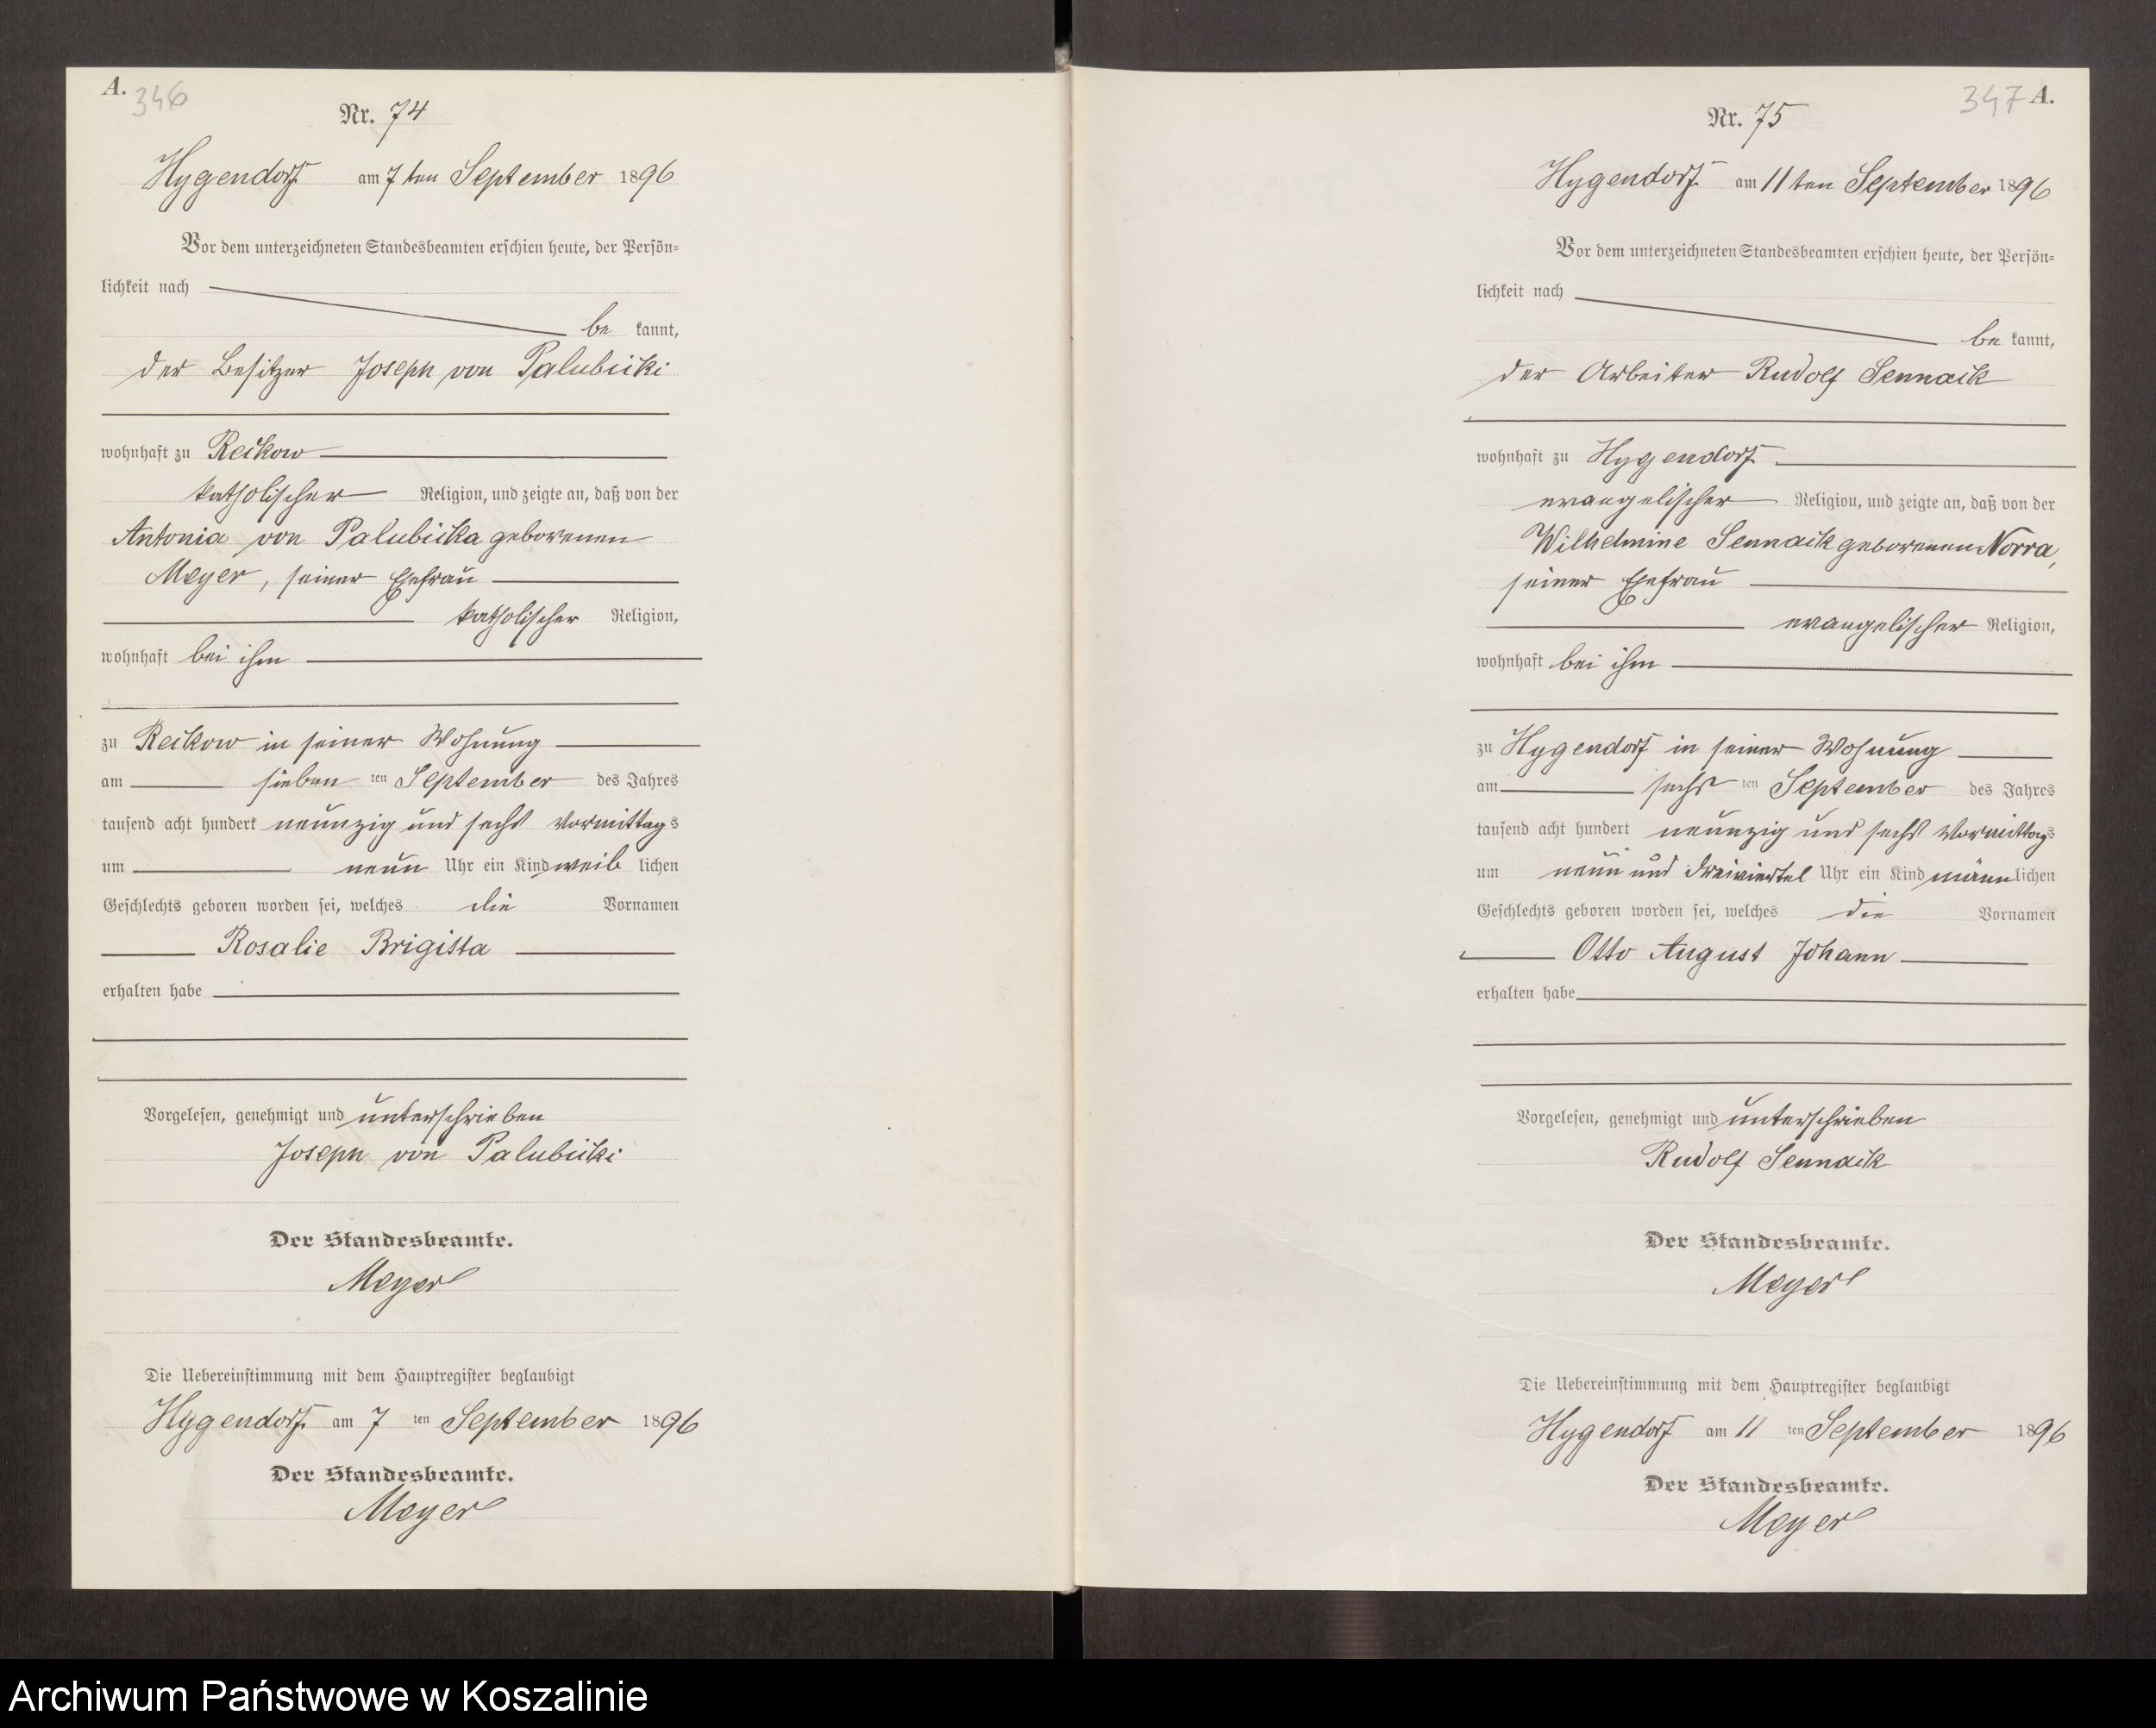 A. 346
Nr. 74
Hygendorf am 7 ten September 1896
Vor dem unterzeichneten Standesbeamten erschien heute, der Persön-
lichkeit nach
be kannt,
der Besitzer Joseph von Palubicki
wohnhaft zu Reckow
katholischer Religion, und zeigte an, daß von der
Antonia von Palubicka geborenen
Meyer, seiner Ehefrau
katholischer Religion,
wohnhaft bei ihm
zu Reckow in seiner Wohnung
am sieben ten September des Jahres
tausend acht hundert neunzig und sechs Vormittags
um neun Uhr ein Kind weib lichen
Geschlechts geboren worden sei, welches die Vornamen
Rosalie Brigitta
erhalten habe
Vorgelesen, genehmigt und unterschrieben
Joseph von Palubicki
Der Standesbeamte.
Meyer
Die Uebereinstimmung mit dem Hauptregister beglaubigt
Hygendorf am 7 ten September 1896
Der Standesbeamte.
Meyer
347 A.
Nr. 75
Hygendorf am 11 ten September 1896
Vor dem unterzeichneten Standesbeamten erschien heute, der Persön-
lichkeit nach
be kannt,
der Arbeiter Rudolf Sennack
wohnhaft zu Hygendorf
evangelischer Religion, und zeigte an, daß von der
Wilhelmine Sennack geborenen Norra,
seiner Ehefrau
evangelischer Religion,
wohnhaft bei ihm
zu Hygendorf in seiner Wohnung
am sechs ten September des Jahres
tausend acht hundert neunzig und sechs Vormittags
um neun und dreiviertel Uhr ein Kind männlichen
Geschlechts geboren worden sei, welches die Vornamen
Otto August Johann
erhalten habe
Vorgelesen, genehmigt und unterschrieben
Rudolf Sennack
Der Standesbeamte.
Meyer
Die Uebereinstimmung mit dem Hauptregister beglaubigt
Hygendorf am 11 ten September 1896
Der Standesbeamte.
Meyer
Archiwum Państwowe w Koszalinie